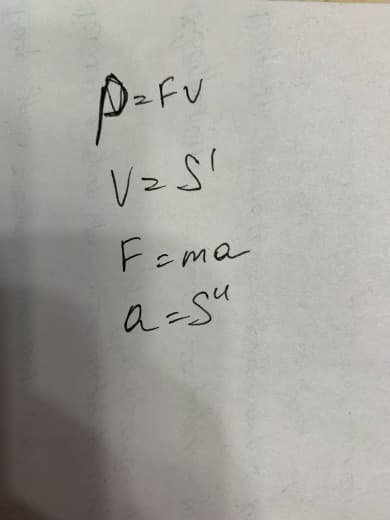 P=FV
V=S'
F=ma
a=S"